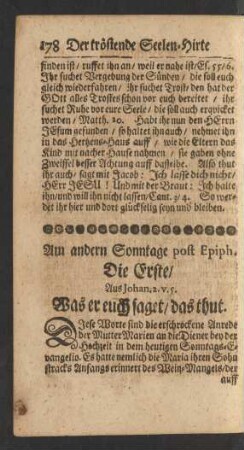 178 Der tröstende Seelen-Hirte
finden ist/ ruffet ihn an/ weil er nahe ist/ Es. 55/6.
Ihr suchet Vergebung der Sünden/ die soll euch
gleich wiederfahrten/ ihr suchet Trost/ den hat der
GOtt alles Trostes schon vor euch bereitet/ ihr
suchet Ruhe vor eure Seele/ die soll auch erqvicket
werden/ Matth. 10. Habt ihr nun den HErrn
JEsum gefunden/ so haltet ihn auch/ nehmet ihn
in das Hertzens-Haus auff/ wie die Eltern das
Kind mit nacher Hause nahmen/ sie gaben ohne
Zweiffel besser Achtung auff dasselbe. Also thut
ihr auch/ sagt mit Jacob: Ich lasse dich nicht/
HErr JESU! Und mit der Braut: Ich halte
ihn/ und will ihn nicht lassen/ Cant. 3/4. So wer-
det ihr hier und dort glückselig seyn und bleiben.
Am andern Sonntage post Epiph.
Die Erste/
Aus Johan. 2. v. 5.
Was er euch saget/ das thut.
Diese Worte sind die erschrockene Anrede
der Mutter Marien an die Diener bey der
Hochzeit in dem heutigen Sonntags-E-
vangelio. Es hatte nemlich die Maria ihren Sohn
stracks Anfangs erinnert des Wein-Mangels/ der
auff